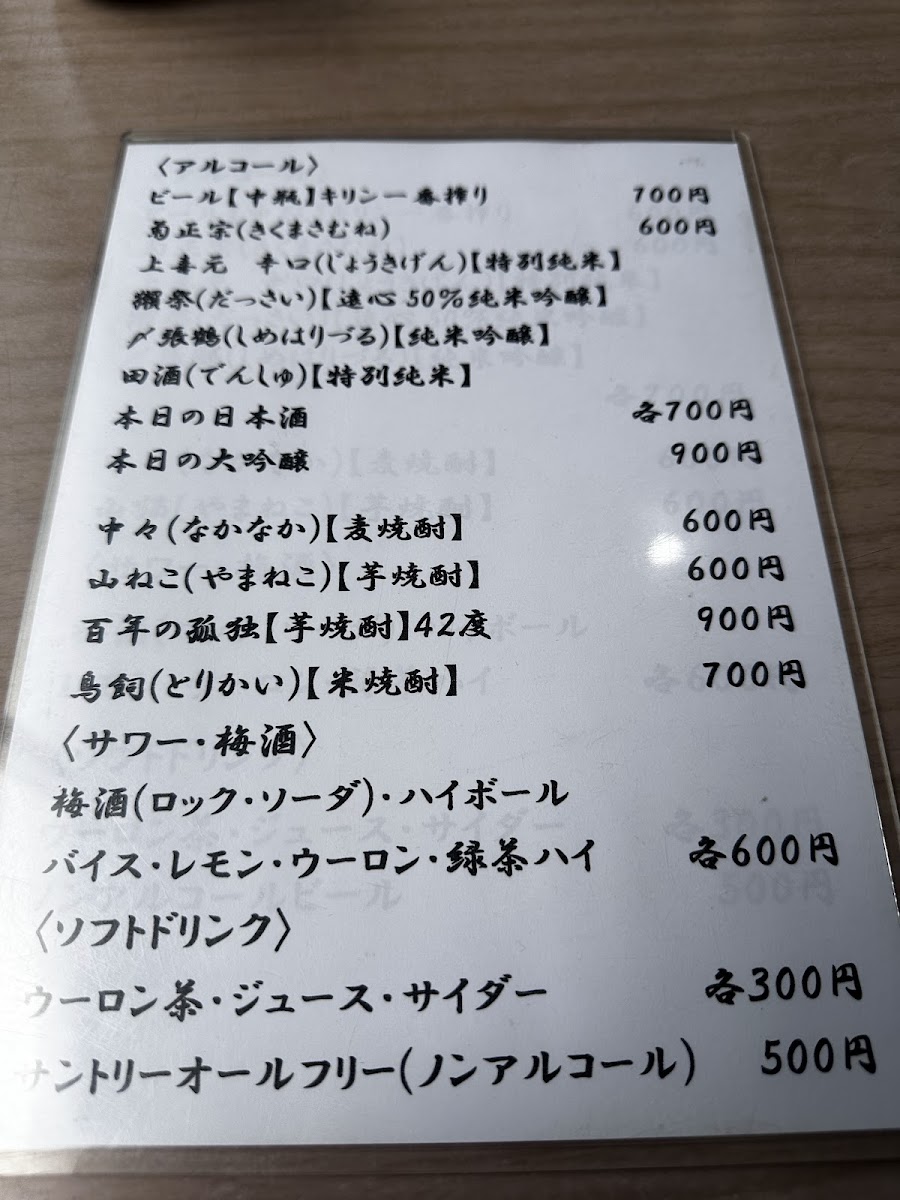 〈アルコール〉
ビール【中瓶】キリン一番搾り 700円
菊正宗(きくまさむね) 600円
上喜元 辛口(じょうきげん)【特別純米】
獺祭(だっさい)【遠心50%純米吟醸】
〆張鶴(しめはりづる)【純米吟醸】
田酒(でんしゅ)【特別純米】
本日の日本酒 各700円
本日の大吟醸 900円
中々(なかなか)【麦焼酎】 600円
山ねこ(やまねこ)【芋焼酎】 600円
百年の孤独【芋焼酎】42度 900円
鳥飼(とりかい)【米焼酎】 700円
〈サワー・梅酒〉
梅酒(ロック・ソーダ)・ハイボール
バイス・レモン・ウーロン・緑茶ハイ 各600円
〈ソフトドリンク〉
ウーロン茶・ジュース・サイダー 各300円
サントリーオールフリー(ノンアルコール) 500円